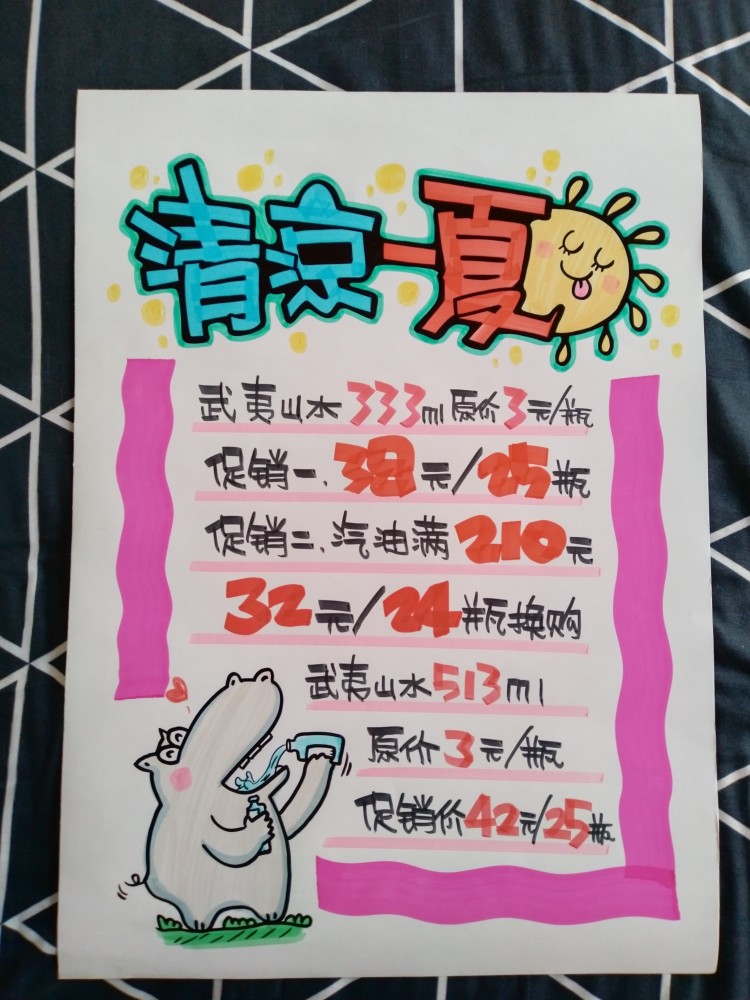 清凉一夏
武夷山水333ml原价3元/瓶
促销一、38元/25瓶
促销二、汽油满210元
32元/24瓶换购
武夷山水513ml
原价3元/瓶
促销价42元/25瓶